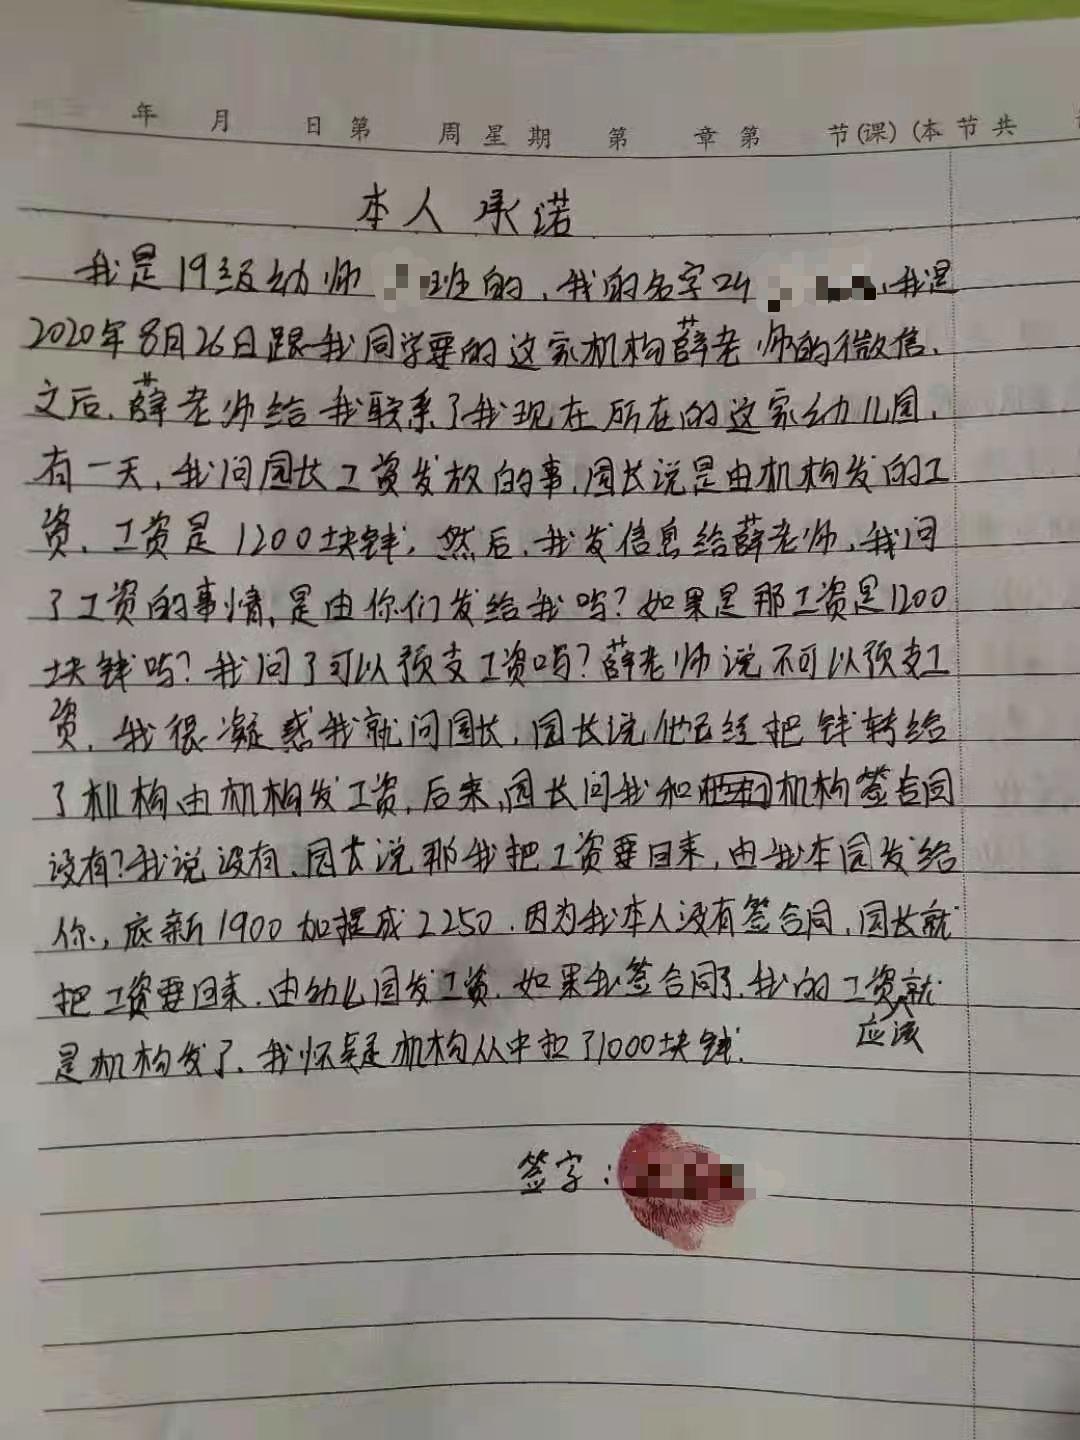 年 月 日 第 周 星 期 第 章 第 节(课) (本 节 共
本人 承诺
我是19级幼师 班的，我的名字叫 ，我是
2020年8月26日跟我同学要的这家机构薛老师的微信，
之后，薛老师给我联系了我现在所在的这家幼儿园，
有一天，我问园长工资发放的事，园长说是由机构发的工
资，工资是1200块钱，然后，我发信息给薛老师，我问
了工资的事情，是由你们发给我吗？如果是那工资是1200
块钱吗？我问了可以预支工资吗？薛老师说不可以预支工
资，我很凝惑我就问园长，园长说他已经把钱转给
了机构由机构发工资，后来，园长问我和机构签合同
没有？我说没有，园长说那我把工资要回来，由我本园发给
你，底新1900加提成2250，因为我本人没有签合同，园长就
把工资要回来，由幼儿园发工资，如果我签合同了，我的工资应该就
是机构发了，我怀疑机构从中扣了1000块钱．
签字：